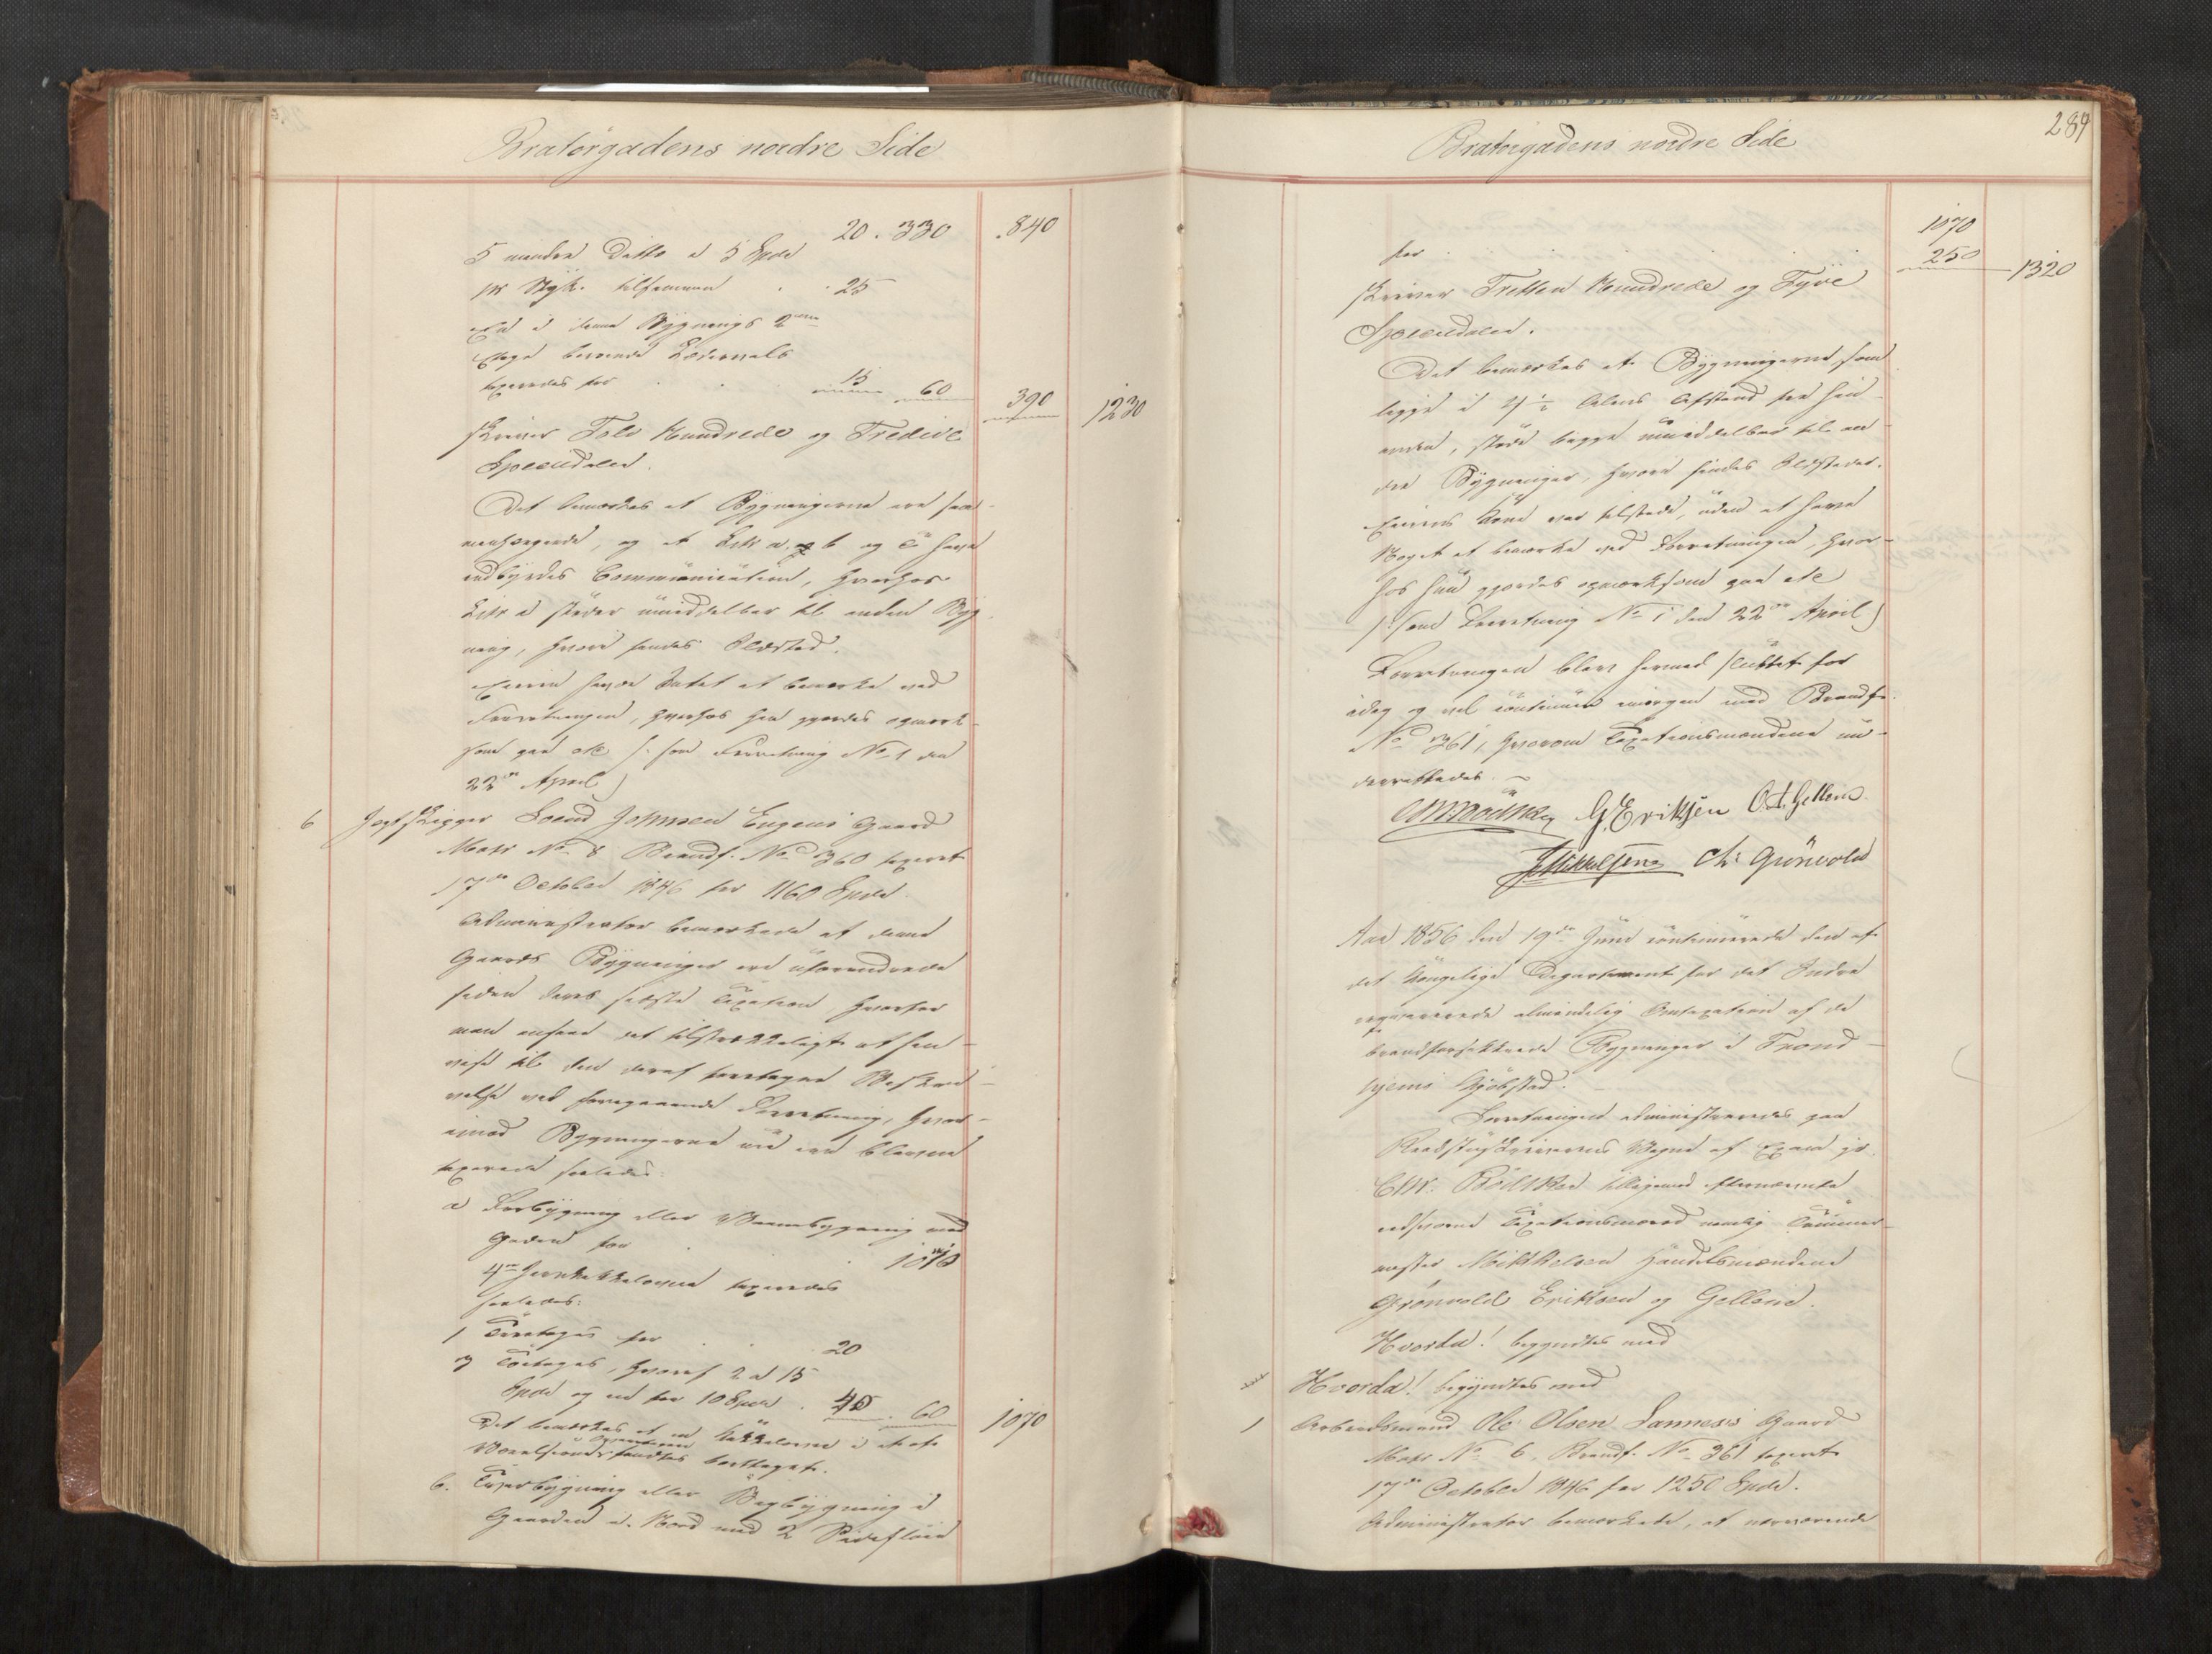 Bratørgadens nordre Side
20. 330 840
5 mindre Ditto a 5 Spd
pr Styk. tilsammen 25
En i denne Bygnings 2den
Etage værende
taxeredes for 15 60 390 1230
skriver Tolv Hundrede og Tredive
Speciedaler.
Det bemærkes at Bygningerne ere sam-
menhængende, og at Litr a, b og c have
indbyrdes Communication, hvorhos
Litr a støder umiddelbar til anden Byg-
ning, hvori findes Ildsted.
Eieren havde Intet at bemærke ved
Forretningen, hvorhos han gjordes opmærk-
som paa etc /: see Forretning No 1 den
22de April)
6 Jagtskipper Svend Johnsen Eugens Gaard
Matr No 8 Brandf. No 360 taxeret
17de October 1846 for 1160 Spd.
Administrator bemærkede at denne
Gaards Bygninger ere uforandrede
siden deres sidste Taxation hvorfor
man ansaae det tilstrækkeligt at hen-
vise til den deraf foretagne Beskri-
velse ved foregaaende Forretning, hvor-
imod Bygningerne nu ere blevne
taxerede saaledes:
a Forbygning eller Vaanebygning mod
Gaden for 1010
4re Jernkakkelovne taxeredes
saaledes:
1 Treetages for 20
3 Toetages, hvoraf 2 a 15
Spd og en for 10 Spd. 40 60 1070
Det bemærkes at en Kakkelovn i et af
borttaget.
b. Tværbygning eller Bagbygning i
Gaarden i Nord med 2 Sidefløie
Bratørgadens nordre Side
289
1070
for 250 1320
skriver Tretten Hundrede og Tyve
Speciedaler.
Det bemærkes at Bygningerne, som
ligge i 4½ Alens Afstand fra hin-
anden, støde begge umiddelbar til an-
dre Bygninger, hvori findes Ildsteder.
Eierens Kone var tilstede, uden at have
Noget at bemærke ved Forretningen, hvor-
hos hun gjordes opmærksom paa etc
/: see Forretning No 1 den 22de April)
Forretningen blev hermed sluttet for
idag og vil continuere imorgen med Brandf.
No 361, hvorom Taxationsmændene un-
derrettedes. —
G. Eriksen O. A. Gellein
J Mikkelsen Ch: Grönvold
Aar 1856 den 19de Juni continuerede den af
det Kongelige Departement for det Indre
requirerede almindelig Omtaxation af de
brandforsikkrede Bygninger i Trond-
hjems Kjøbstad. —
Forretningen administreredes paa
Raadstuskriverens Vegne af Exam jur
Chr: Bödtker tilligemed efternævnte
edsvorne Taxationsmænd nemlig Tømmer-
mester Mikkelsen Handelsmændene
Grønvold Eriksen og Gellein.
Hvorda! begyndtes med
Hvorda! begyndtes med
1 Arbeidsmand Ole Olsen Sannæss Gaard
Matr No 6. Brandf. No 361 taxeret
17de October 1846 for 1250 Spd.
Administrator bemærkede, at nærværende